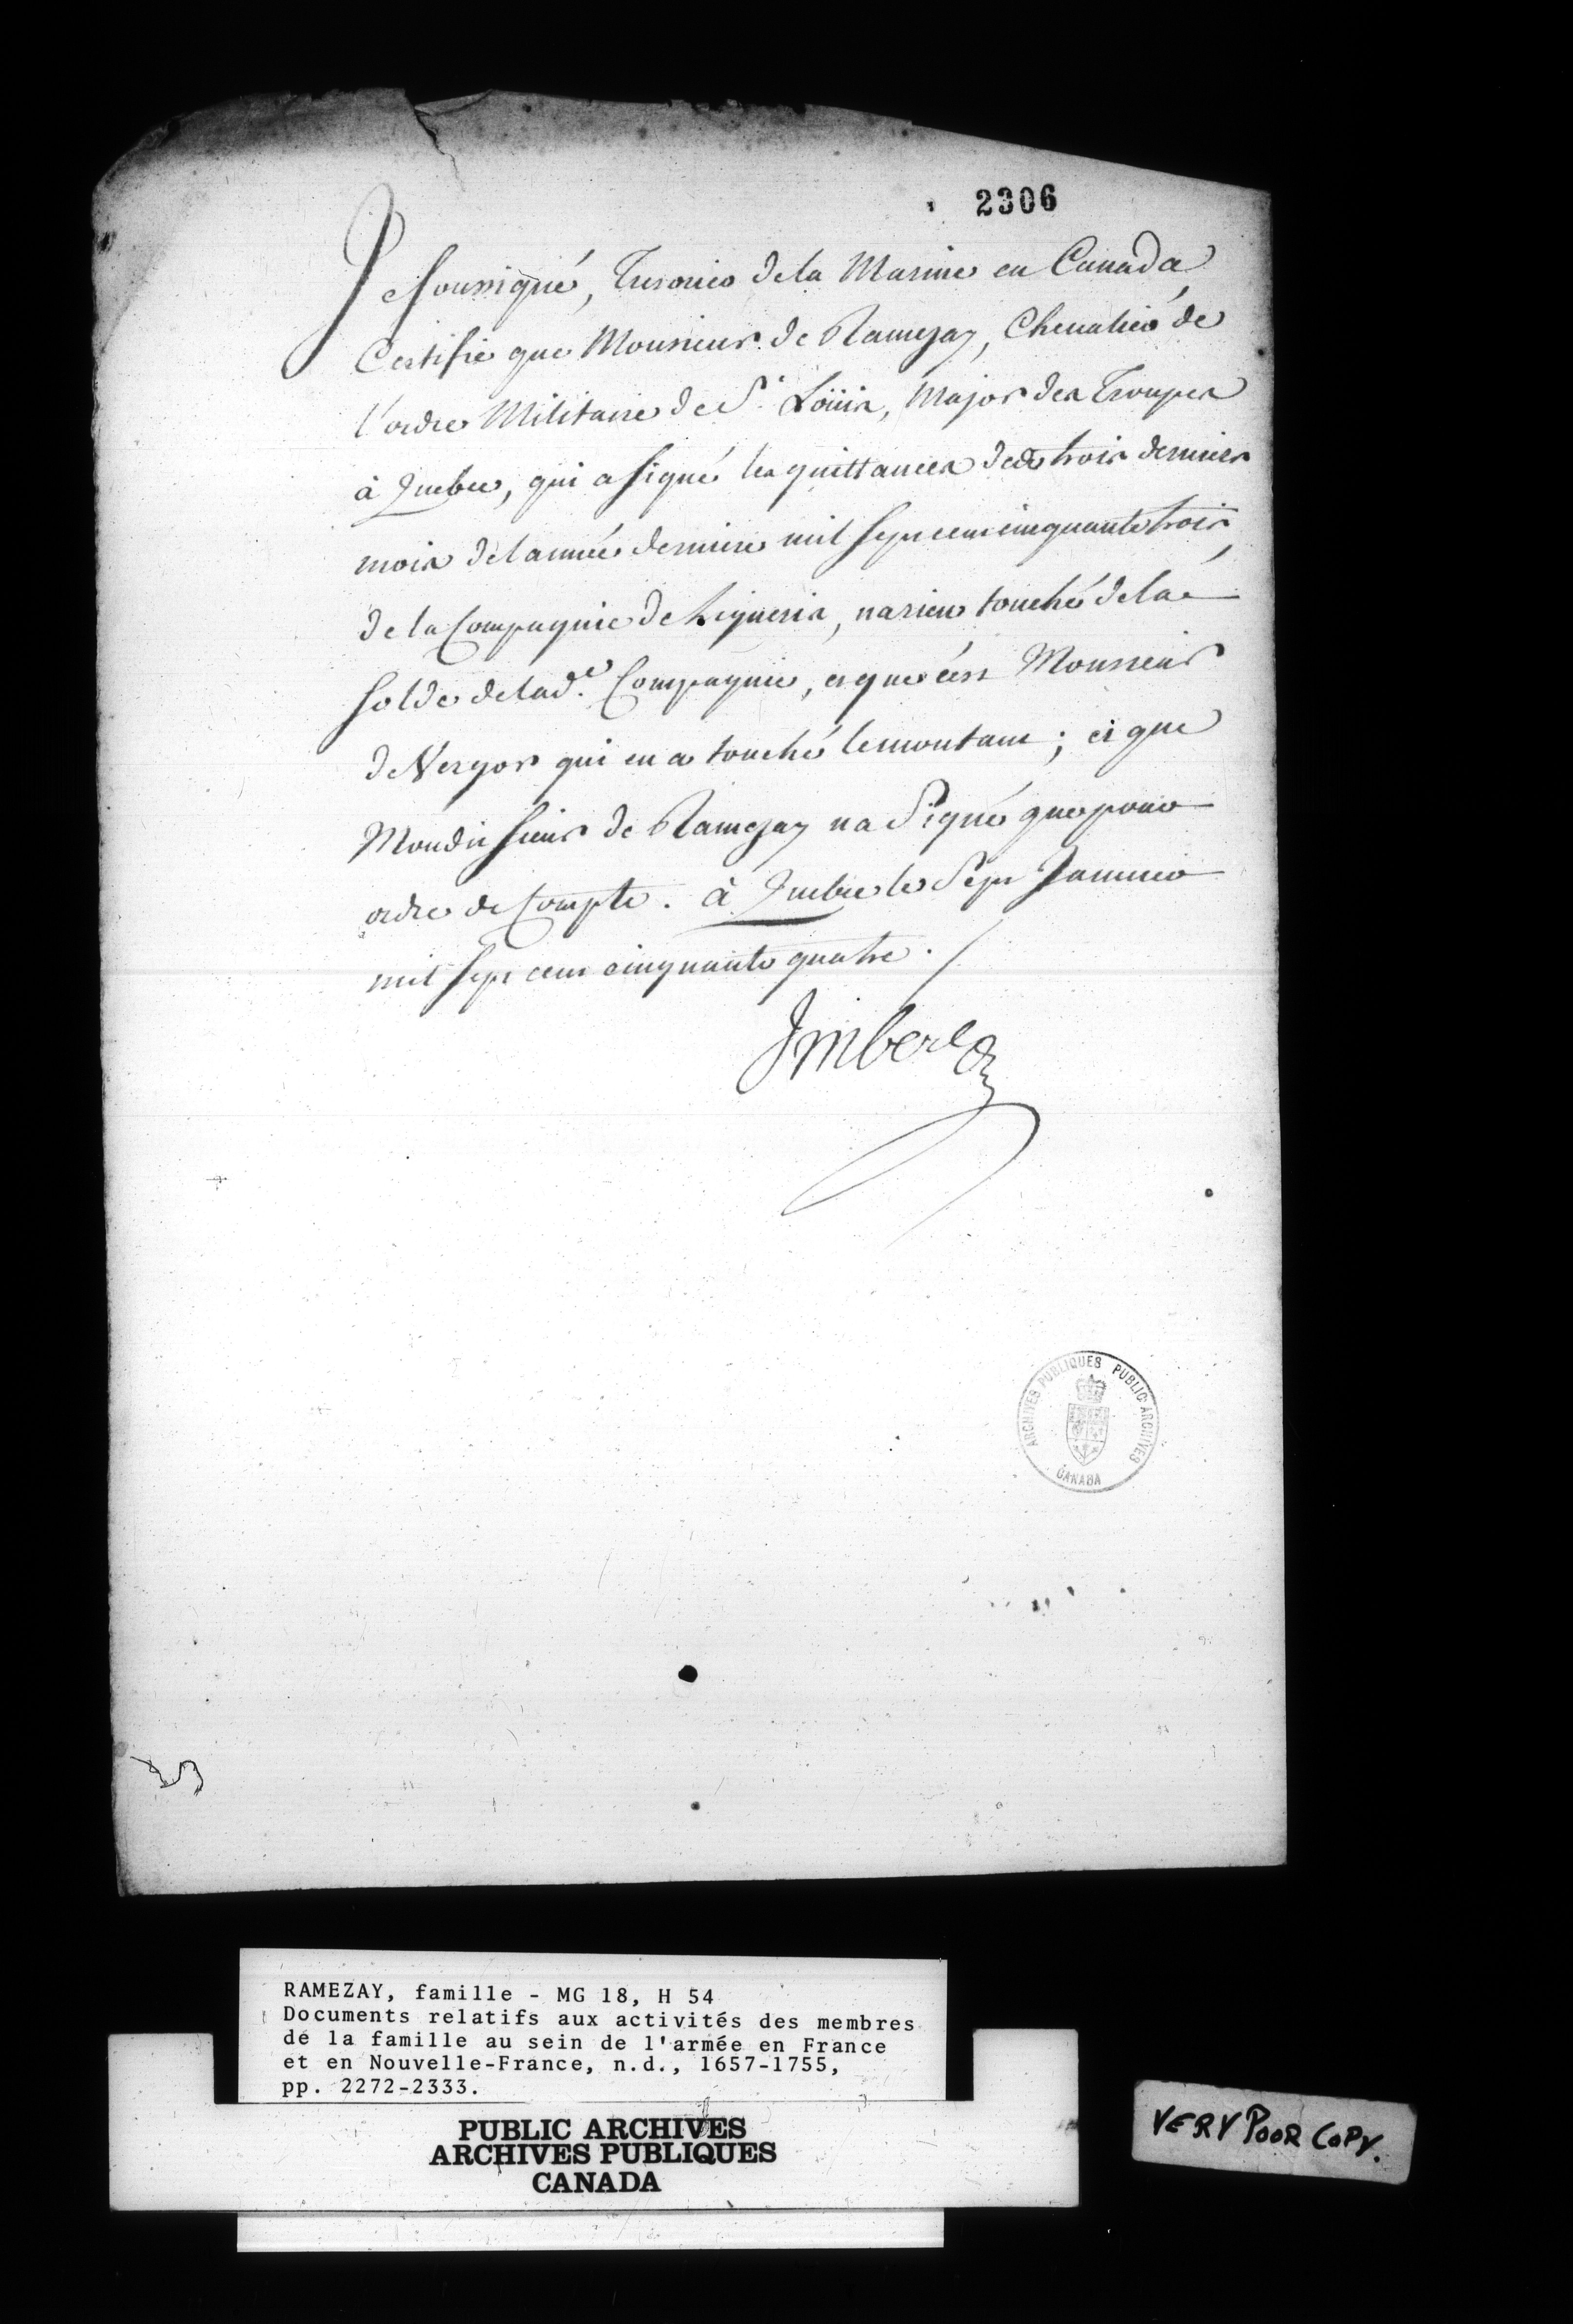 2306
Je soussigné, Tresorier de la Marine en Canada,
Certifie que Monsieur de Ramezay, Chevalier de
l'ordre Militaire de St. Loüis, Major des Troupes
à Quebec, qui a signé les quittances des trois derniers
mois de l'année derniere mil sept cent cinquante trois,
de la Compagnie de Ligneris, na rien touché de la
solde de lad.e Compagnie, et que c'est Monsieur
de Vergor qui en a touché le montant; et que
Mondit sieur de Ramezay na Signé que pour
ordre de Compte. à Quebec le Sept Janvier
mil sept cent cinquante quatre ./
Imbert
ARCHIVES PUBLIQUES PUBLIC ARCHIVES
CANADA
RAMEZAY, famille - MG 18, H 54
Documents relatifs aux activités des membres
de la famille au sein de l'armée en France
et en Nouvelle-France, n.d., 1657-1755,
pp. 2272-2333.
PUBLIC ARCHIVES
ARCHIVES PUBLIQUES
CANADA
VERY POOR COPY.